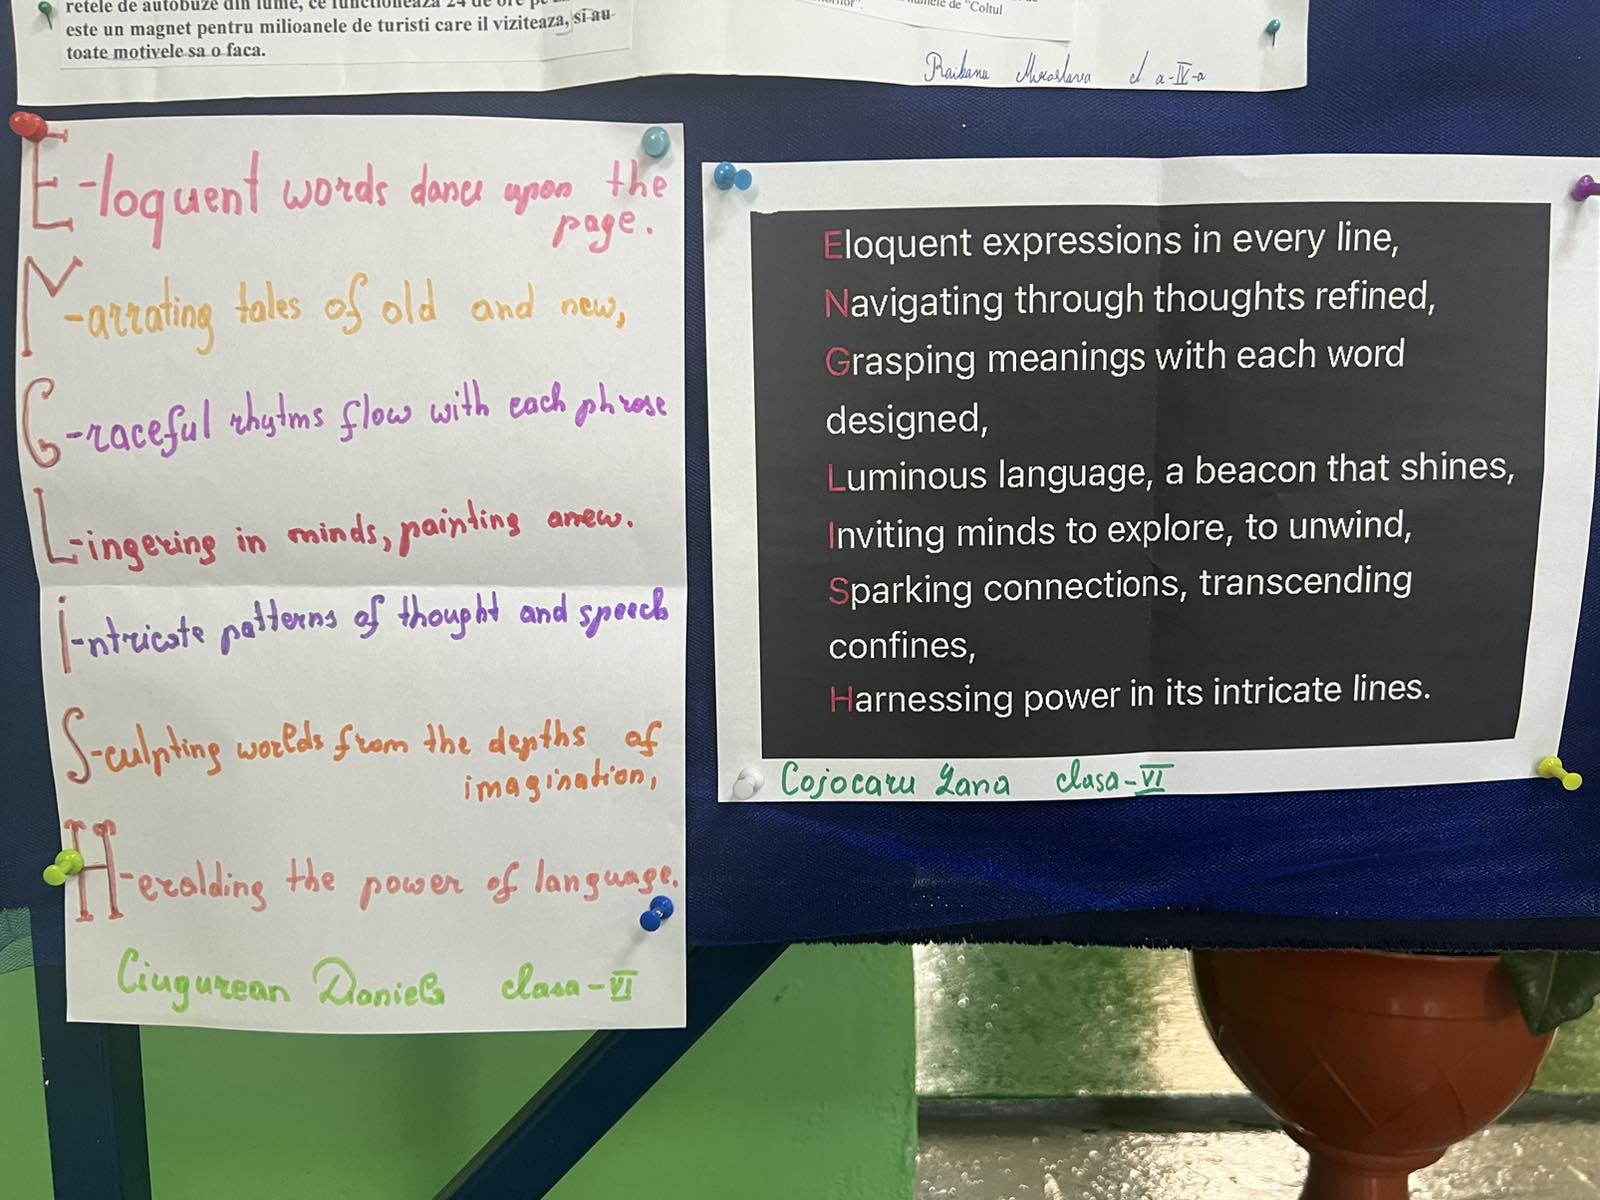 retele de autobuze din lume, ce functioneaza 24 de ore pe
este un magnet pentru milioanele de turisti care il viziteaza, si-au
toate motivele sa o faca.
numele de "Coltul
Raileanu Miroslava cl. a-IV-a
E-loquent words dance upon the
page.
N-arrating tales of old and new,
G-raceful rhytms flow with each phrase
L-ingering in minds, painting anew.
i-ntricate patterns of thought and speech
S-culpting worlds from the depths of
imagination,
H-eralding the power of language.
Ciugurean Daniela clasa-VI
Eloquent expressions in every line,
Navigating through thoughts refined,
Grasping meanings with each word
designed,
Luminous language, a beacon that shines,
Inviting minds to explore, to unwind,
Sparking connections, transcending
confines,
Harnessing power in its intricate lines.
Cojocaru Yana clasa-VI